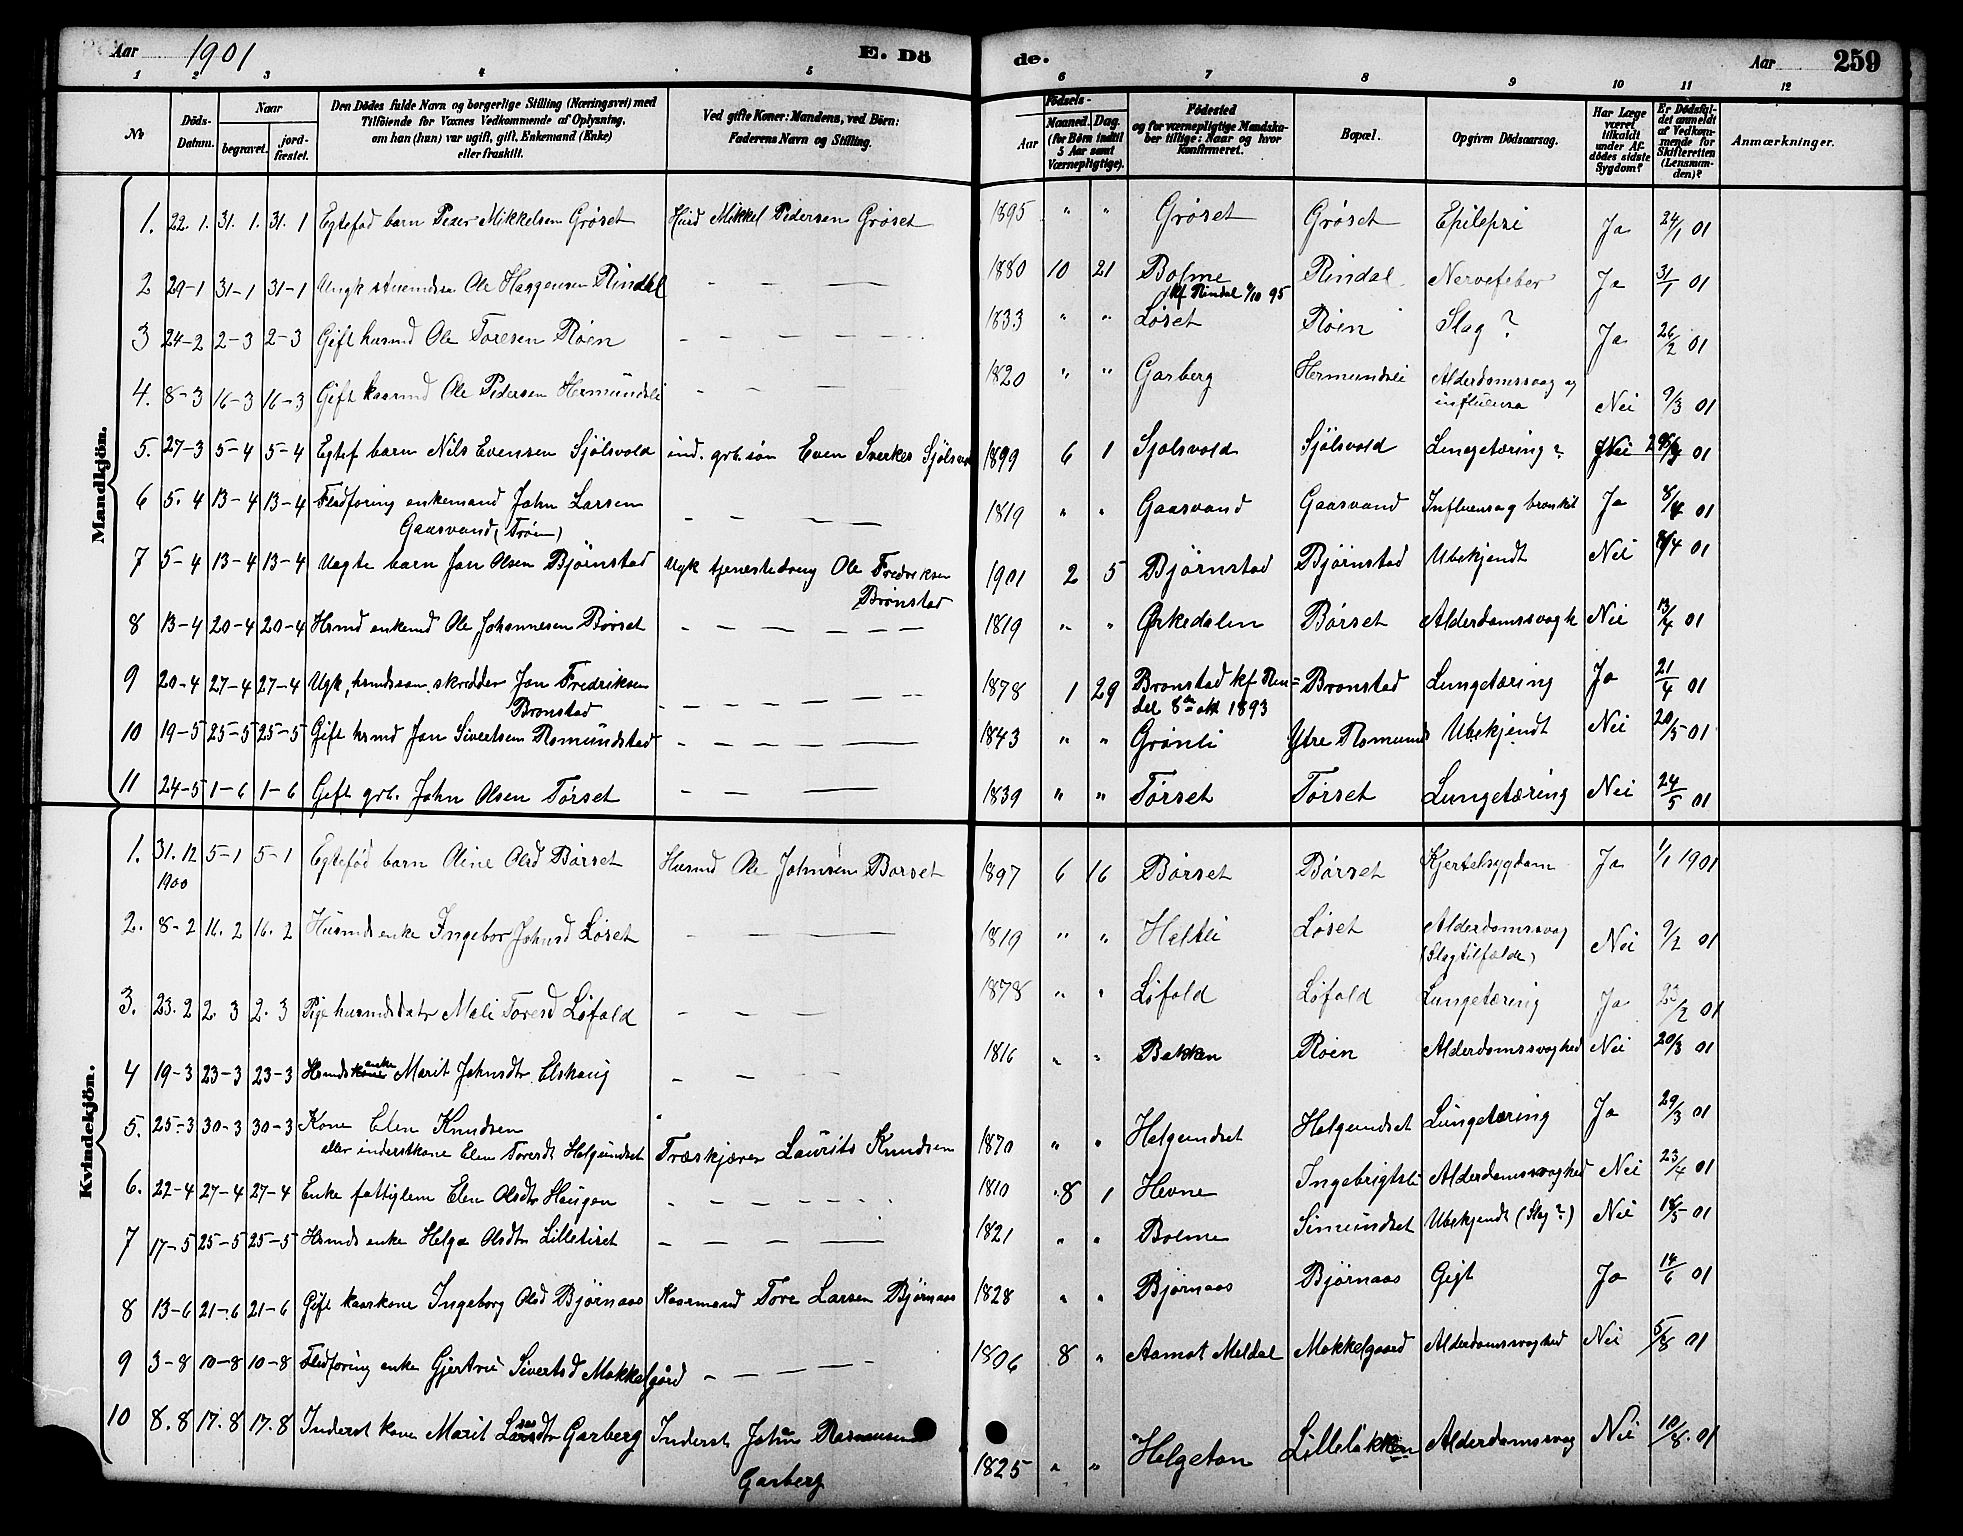 Aar 1901 E. Dö
1 2 3 4 5
No Döds-Datum. Naar begravet. jord-fæstet. Den Dödes fulde Navn og borgerlige Stilling (Næringsvei) med Tilföiende for Voxnes Vedkommende af Oplysning, om han (hun) var ugift, gift, Enkemand (Enke) eller fraskilt. Ved gifte Koner: Mandens, ved Börn: Faderens Navn og Stilling.
Mandkjön.
1. 22. 1. 31. 1. 31. 1 Egtefød barn Peder Mikkelsen Grøset Husd Mikkel Pedersen Grøset
2 29-1 31-1 31-1 Ole Haagensen Rindal — — —
3 24-2 2-3 2-3 Gift husmd Ole Toresen Røen — — — —
4. 8-3 16-3 16-3 Gift kaarmd Ole Pedersen Hermundsli — — —
5. 27-3 5-4 5-4 Egtef barn Nils Evensen Sjölsvold ind. grb.søn Even Sverkes
6 5. 4 13-4 13-4 Fladföring enkemand John Larsen — — — —
Gaasvand (Trøen)
7 5-4 13-4 13-4 Uegte barn Jon Olsen Bjørnstad Ugk tjenestedreng Ole Fredriksen
Brønstad
8 13-4 20-4 20-4 Hsmd enkemd Ole Johannesen Børset — — — — — —
9 20-4 27-4 27-4 Ugk, hsmdssøn, skredder Jon Fredriksen
Brønstad — — — — — —
10 19-5 25-5 25-5 Gift hsmd Jon Sivertsen Romundstad — — — — —
11 24-5 1-6 1-6 Gift grb. John Olsen Tørset — — —
Kvindekjön.
1. 31. 12 5-1 5-1 Egtefød barn Oline Olsd Børset Husmd Ole Johnsen Børset
1900
2. 8-2 16. 2 16. 2 Husmds enke Ingebor Johnsd Løset — — — — —
3. 23. 2 2. 3 2. 3 Pige husmdsdatr Mali Toresd Løfald — — —
4 19-3 23-3 23-3 Hsmds enke Marit Johnsdtr Elshaug — — —
5. 25-3 30-3 30-3 Kone Elen Knudsen
eller inderstkone Elen Toresdt Helgundset Træskjærer Laurits Knudsen
6. 22-4 27-4 27-4 Enke fattiglem Elen Olsdtr Haugen — — — — —
7 17-5 25-5 25-5 Hsmds enke Helga Olsdtr — — — — —
8 13-6 21-6 21-6 Gift kaarkone Ingeborg Olsd Bjørnaas Kaarmand Tore Larsen Bjørnaas
9 3-8 10-8 10-8 Fledføring enke Gjertru Sivertsd Mokkelgård — — — —
10 8. 8 17. 8 17. 8 Inderst kone Marit Garberg Inderst John Rasmussen
Garberg
de. Aar 259
6 7 8 9 10 11 12
Födsels- Aar Maaned. Dag. (for Börn indtil 5 Aar samt Værnepligtige). Födested og for værnepligtige Mandskaber tillige: Naar og hvor konfirmeret. Bopæl. Opgiven Dödsaarsag. Har Læge været tilkaldt under Afdödes sidste Sygdom? Er Dödsfaldet anmeldt af Vedkommende for Skifteretten (Lensmanden)? Anmærkninger.
1895 " " Grøset Grøset Epilepsi Ja 24/1 01
1880 10 21 Bolme Rindal Nervefeber Ja 31/1 01
kf Rindal 95
1833 " " Løset Røen Slag? Ja 26/2 01
1820 " " Garberg Hermundsli Alderdomssvag og
influensa Nei 9/3 01
1899 6 1 Sjølsvold Sjølsvold Lungetæring? Nei 01
1819 " " Gaasvand Gaasvand Influensa og bronkit Ja 8/4 01
1901 2 5 Bjørnstad Bjørnstad Ubekjendt Nei 8/4 01
1819 " " Ørkedalen Børset Alderdomssvagh Nei 13/4 01
1878 1 29 Brønstad kf Rin= Brønstad Lungetæring Ja 21/4 01
dal 8de okt 1893
1843 " " Grønli Ytre Romunds Ubekjendt Nei 20/5 01
1839 " " Tørset Tørset Lungetæring Nei 24/5 01
1897 6 16 Børset Børset Kjertelsygdom Ja 1/1 1901
1819 " " Heltli Løset Alderdomssvag
(Slagtilfælde) Nei 9/2 01
1878 " " Løfald Løfald Lungetæring Ja 23/2 01
1816 " " Bakken Røen Alderdomssvaghed Nei 20/3 01
1870 " " Helgundset Helgundset Lungetæring Ja 29/3 01
1810 8 1 Hevne Ingebrigtsli Alderdomssvaghed Nei 23/4 01
1821 " " Bolme Simundset Ubekjendt (Slag?) Nei 18/5 01
1828 " " Bjørnaas Bjørnaas Gigt Ja 14/6 01
1806 8 " Aamot Meldal Mokkelgaard Alderdomssvaghed Nei 5/8 01
1825 " " Helgeton Lilleløkken Alderdomssvag Nei 10/8. 01